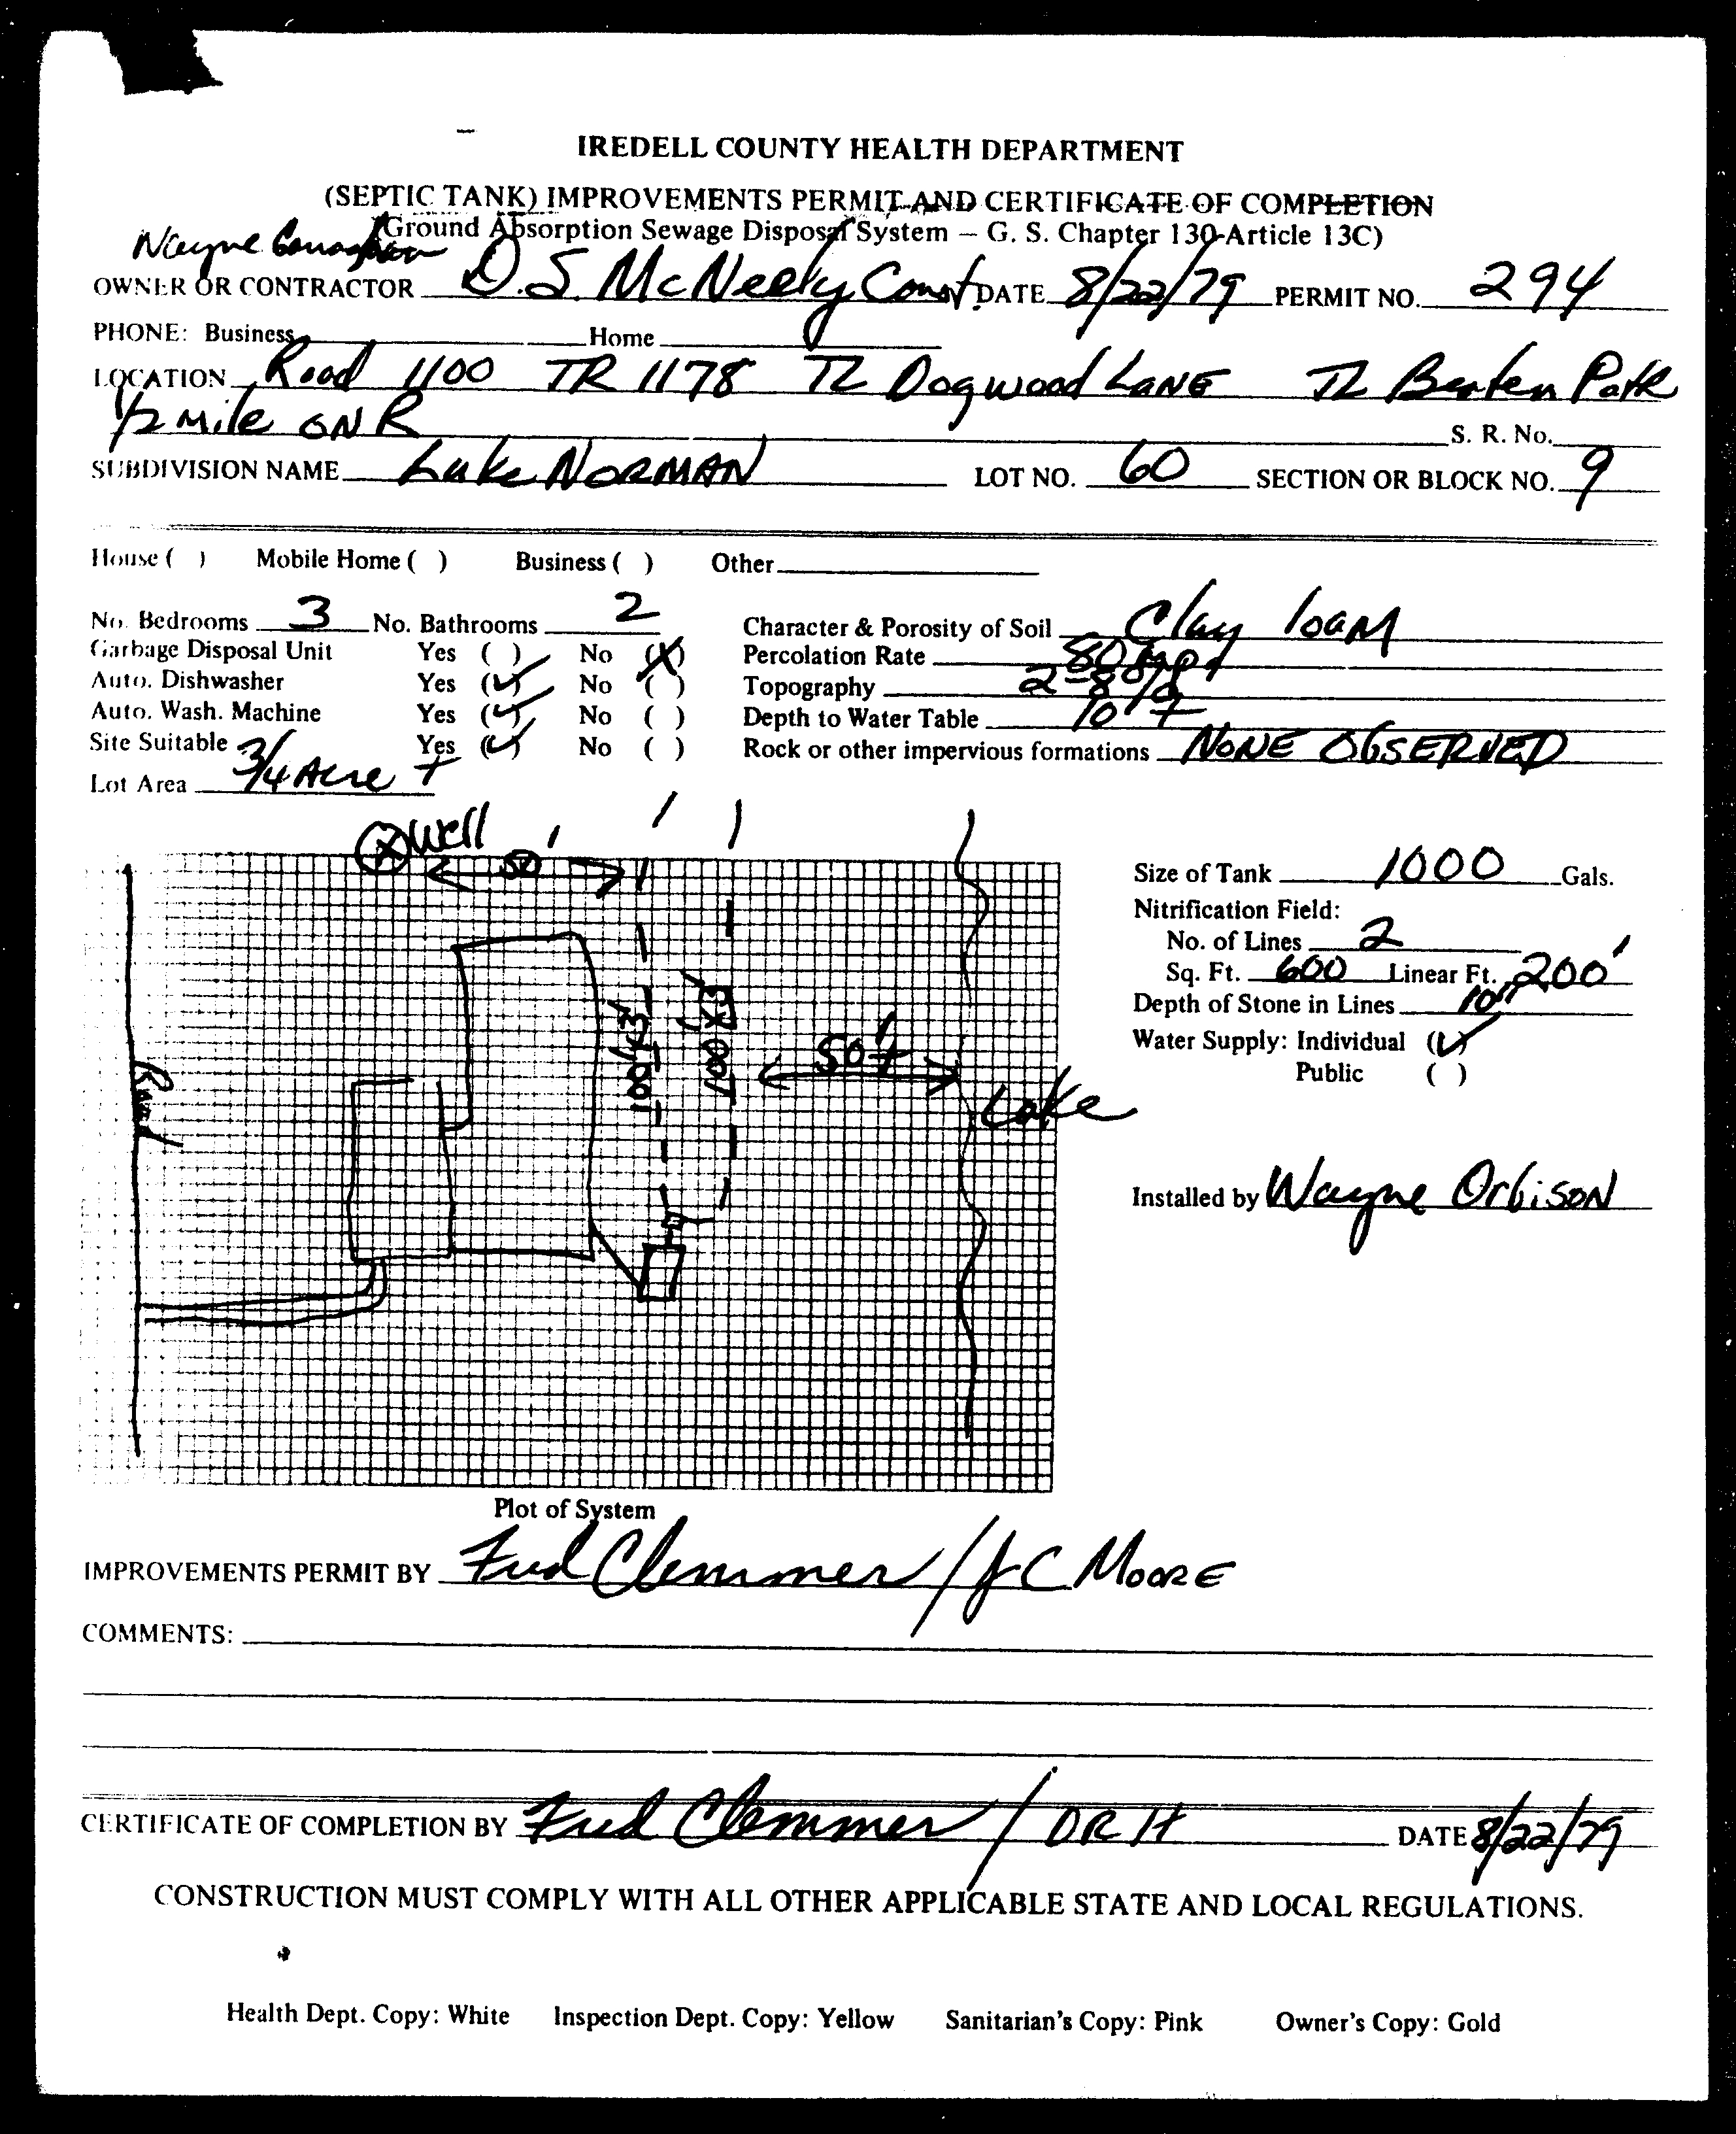 IREDELL COUNTY HEALTH DEPARTMENT
(SEPTIC TANK) IMPROVEMENTS PERMIT AND CERTIFICATE OF COMPLETION
(Ground Absorption Sewage Disposal System – G. S. Chapter 130-Article 13C)
Wayne
OWNER OR CONTRACTOR D.S. McNeely Const. DATE 8/22/79 PERMIT NO. 294
PHONE: Business Home
LOCATION Road 1100 TR 1178 TL Dogwood LANE TL Beaten Path
1/2 Mile ON R S. R. No.
SUBDIVISION NAME Lake NORMAN LOT NO. 60 SECTION OR BLOCK NO. 9
House ( ) Mobile Home ( ) Business ( ) Other
No. Bedrooms 3 No. Bathrooms 2 Character & Porosity of Soil Clay loam
Garbage Disposal Unit Yes ( ) No (X) Percolation Rate 80
Auto. Dishwasher Yes (✓) No ( ) Topography 2-8%
Auto. Wash. Machine Yes (✓) No ( ) Depth to Water Table 10' +
Site Suitable Yes (✓) No ( ) Rock or other impervious formations NONE OBSERVED
Lot Area 3/4 Acre +
X Well
50'
Size of Tank 1000 Gals.
Nitrification Field:
No. of Lines 2
Sq. Ft. 600 Linear Ft. 200'
Depth of Stone in Lines 10"
Water Supply: Individual (✓)
Public ( )
100'x3'
100'x3'
50'+
Road
Lake
Installed by Wayne Orbison
Plot of System
IMPROVEMENTS PERMIT BY Fred Clemmer / JC MOORE
COMMENTS:
CERTIFICATE OF COMPLETION BY Fred Clemmer / DRH DATE 8/22/79
CONSTRUCTION MUST COMPLY WITH ALL OTHER APPLICABLE STATE AND LOCAL REGULATIONS.
Health Dept. Copy: White Inspection Dept. Copy: Yellow Sanitarian's Copy: Pink Owner's Copy: Gold